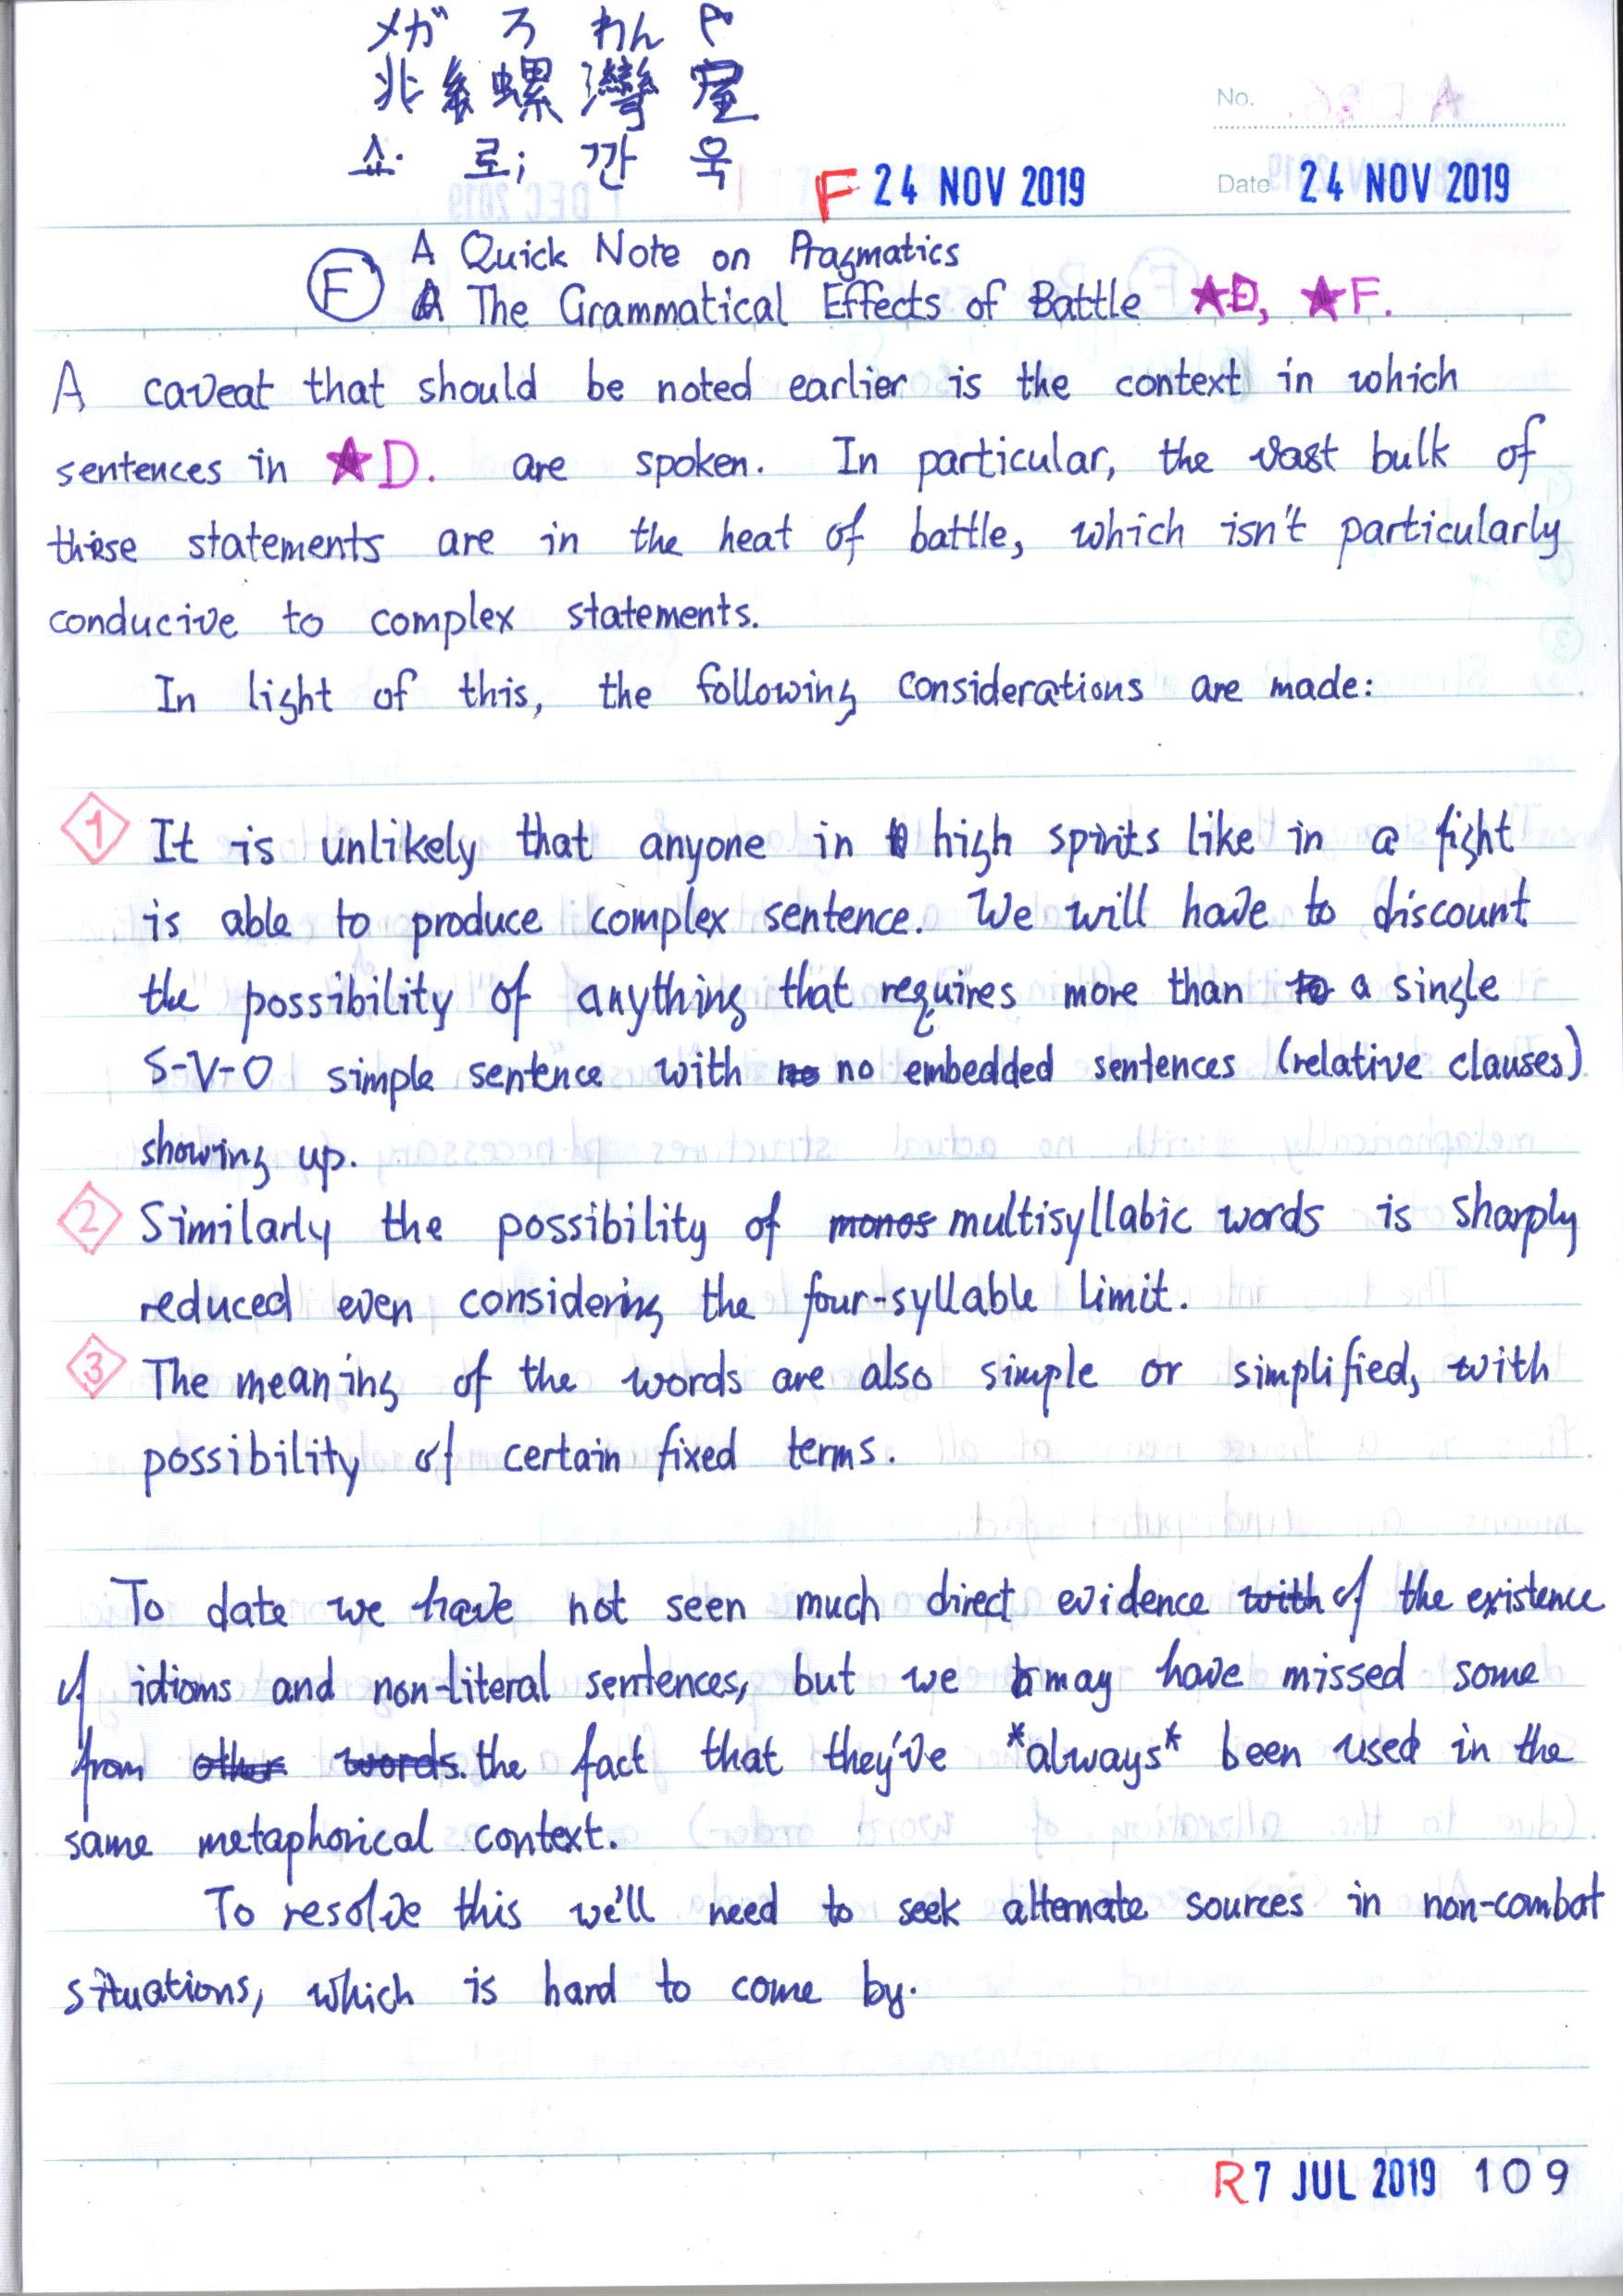 メガ ろ わん や
兆 螺 灣 屋
쇼. 로; 깐 옥
No.
F 24 NOV 2019
Date 24 NOV 2019
A Quick Note on Pragmatics
F The Grammatical Effects of Battle ★D, ★F.
A caveat that should be noted earlier is the context in which
sentences in ★D. are spoken. In particular, the vast bulk of
these statements are in the heat of battle, which isn't particularly
conducive to complex statements.
In light of this, the following considerations are made:
1 It is unlikely that anyone in high spirits like in a fight
is able to produce complex sentence. We will have to discount
the possibility of anything that requires more than to a single
S-V-O simple sentence with no no embedded sentences (relative clauses)
showing up.
2 Similarly the possibility of monos multisyllabic words is sharply
reduced even considering the four-syllable limit.
3 The meaning of the words are also simple or simplified, with
possibility of certain fixed terms.
To date we have not seen much direct evidence with of the existence
of idioms and non-literal sentences, but we may have missed some
from other words. the fact that they've *always* been used in the
same metaphorical context.
To resolve this we'll need to seek alternate sources in non-combat
situations, which is hard to come by.
R 7 JUL 2019 109